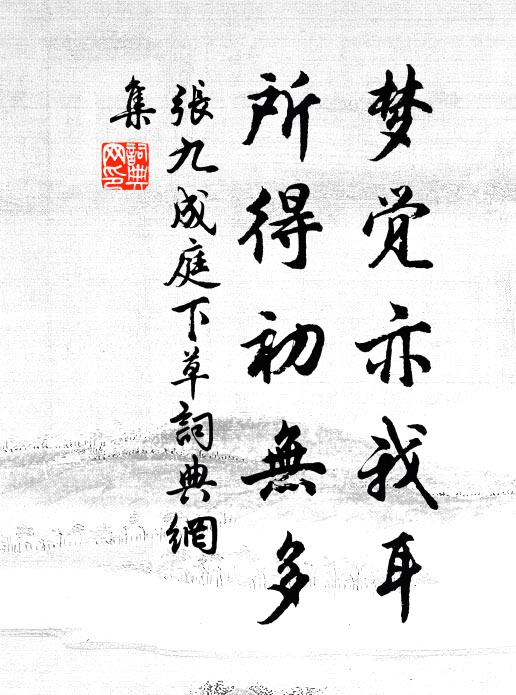 梦觉亦我耳
所得初無多
張九成庭下草詞典網
集
詞典
网印